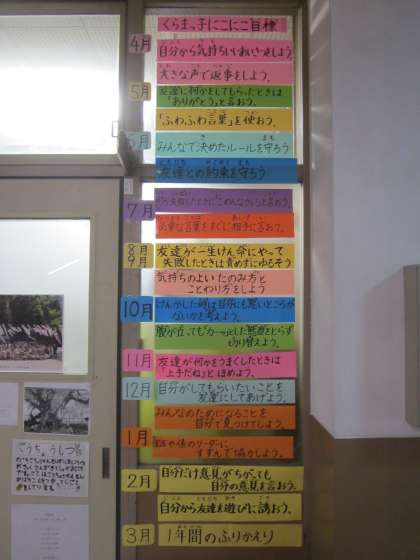 くらまっ子にこにこ目標
4月
自分から気持ちいいあいさつをしよう。
大きな声で返事をしよう。
5月
友達に何かをしてもらったときは
「ありがとう」と言おう。
「ふわふわ言葉」を使おう。
6月
みんなで決めたルールを守ろう
友達との約束を守ろう
7月
失敗したときに「ごめんなさい」と言おう。
必要な言葉をすぐに相手に言おう。
8月
9月
友達が一生けん命にやって
失敗したときは責めずにゆるそう
気持ちのよい たのみ方と
ことわり方をしよう
10月
けんかした時は自分にも悪いところが
ないかを考えよう。
腹が立っても「カーッ」とした態度をとらず
切り替えよう。
11月
友達が何かをうまくしたときは
「上手だね」とほめよう。
12月
自分がしてもらいたいことを
友達にしてあげよう。
みんなのためになることを
自分で見つけてしよう。
1月
班や係のリーダーに
すすんで協力しよう。
2月
自分だけ意見がちがっても
自分の意見を言おう。
自分から友達を遊びに誘おう。
3月
1年間のふりかえり
こうちょうしつ